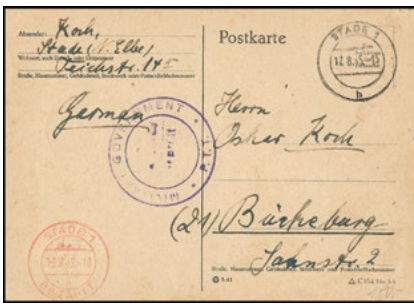 Absender: Koch,
Stade (N. Elbe)
Wohnort, auch Zustell- oder Leitpostamt
Teichstr. 14
Straße, Hausnummer, Gebäudeteil, Stockwerk oder Postschließfachnummer
German
Postkarte
STADE 1
b
GOVERNMENT
P.T.T.
Herrn
Oskar Koch
(21) Bückeburg
Jahnstr. 2
Straße, Hausnummer, Gebäudeteil, Stockwerk oder Postschließfachnummer
STADE 1